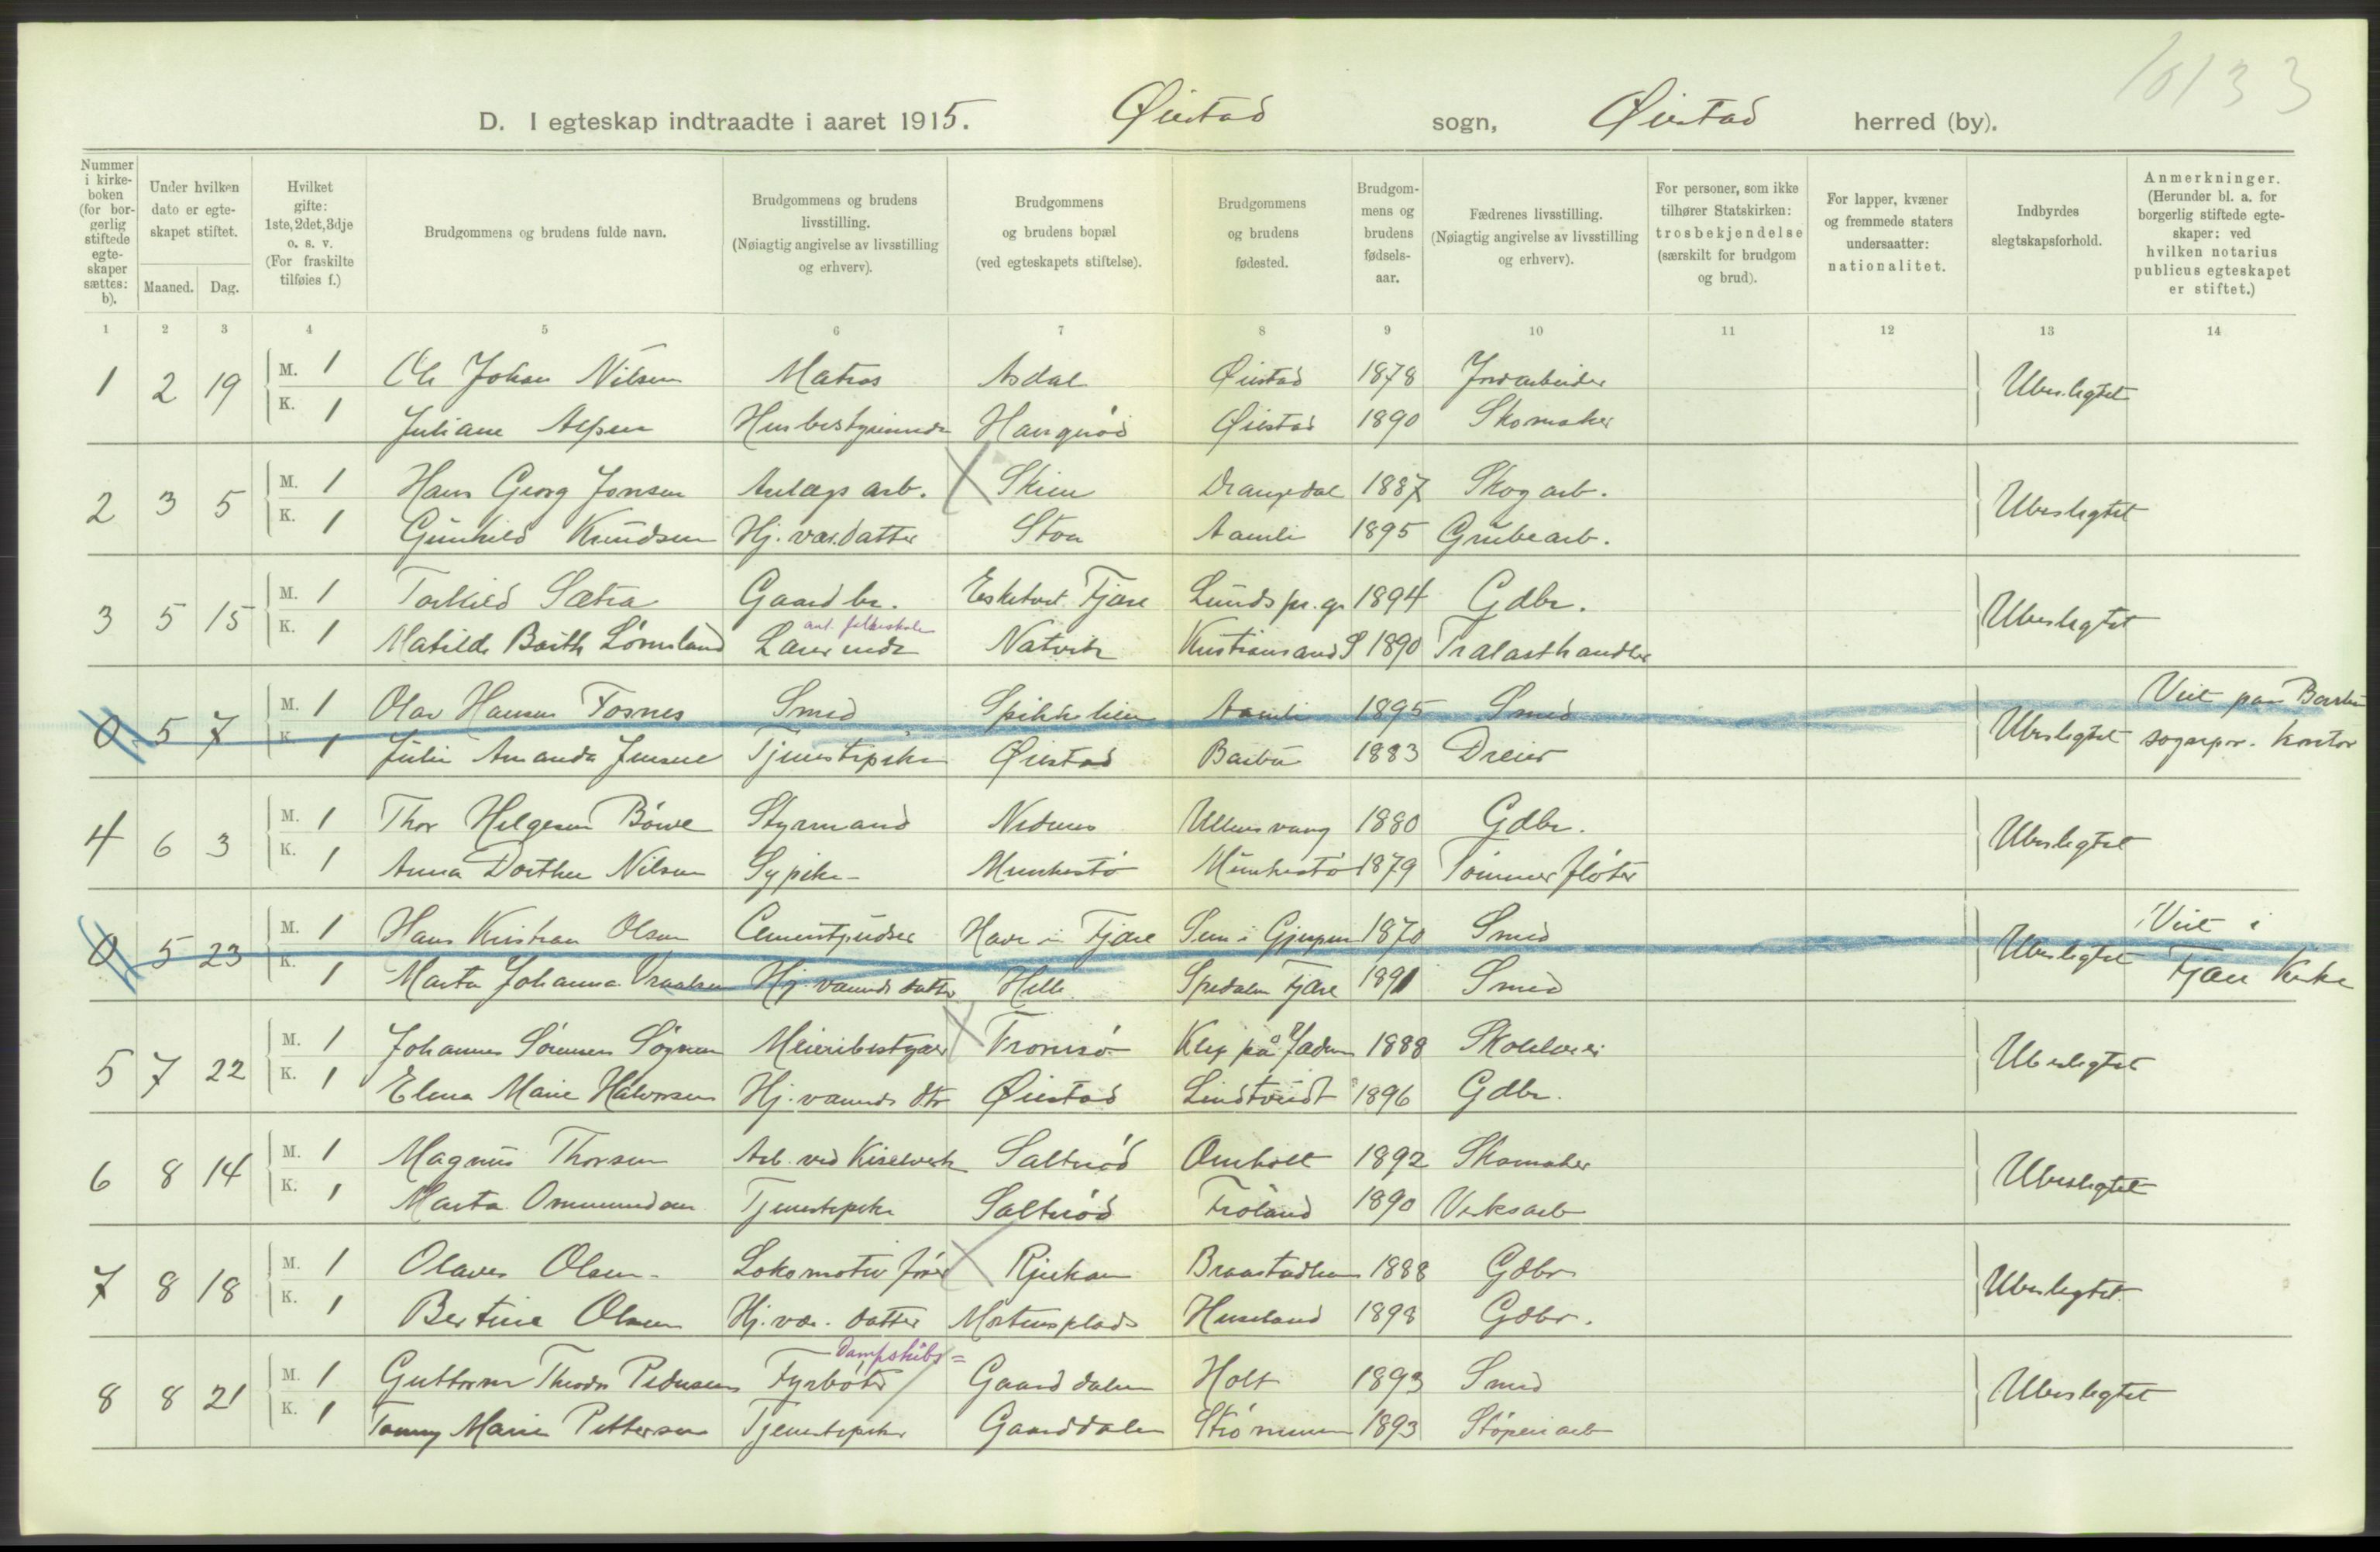 10133
D. I egteskap indtraadte i aaret 1915. Øiestad sogn, Øiestad herred (by).
Nummer i kirkeboken (for borgerlig stiftede egteskaper sættes: b).
Under hvilken dato er egteskapet stiftet.
Maaned. Dag.
Hvilket gifte: 1ste, 2det, 3dje o. s. v. (For fraskilte tilføies f.)
Brudgommens og brudens fulde navn.
Brudgommens og brudens livsstilling. (Nøiagtig angivelse av livsstilling og erhverv).
Brudgommens og brudens bopæl (ved egteskapets stiftelse).
Brudgommens og brudens fødested.
Brudgommens og brudens fødselsaar.
Fædrenes livsstilling. (Nøiagtig angivelse av livsstilling og erhverv).
For personer, som ikke tilhører Statskirken: trosbekjendelse (særskilt for brudgom og brud).
For lapper, kvæner og fremmede staters undersaatter: nationalitet.
Indbyrdes slegtskapsforhold.
Anmerkninger. (Herunder bl. a. for borgerlig stiftede egteskaper: ved hvilken notarius publicus egteskapet er stiftet.)
1 2 3 4 5 6 7 8 9 10 11 12 13 14
1 2 19 M. 1 Ole Johan Nilsen Matros Asdal Øiestad 1878 Jordarbeider Ubeslegtet
K. 1 Juliane Husbestyrerinde Øiestad 1890 Skomaker
2 3 5 M. 1 Hans Georg Jonsen Anlægs arb. Skien Drangedal 1887 Skog arb. Ubeslegtet
K. 1 Gunhild Knudsen Hj. vær. datter Stoa Aamli 1895 Grubearb.
3 5 15 M. 1 Torkild Sætra Gaardbr. Fjære Lunds pr. gj. 1894 Gdbr. Ubeslegtet
ant. folkeskole
K. 1 Matilde Barth Lømsland Lærerinde Natvik Kristiansand S 1890 Trælasthandler
0 5 7 M. 1 Olav Hansen Fosnes Smed Spikkelien Aamli 1895 Smed Ubeslegtet Viet paa sognepr. kontor
K. 1 Julie Amanda Jensen Tjenestepike Øiestad Barbu 1883 Dreier
4 6 3 M. 1 Thor Helgesen Børve Styrmand Nedenes Ullensvang 1880 Gdbr. Ubeslegtet
K. 1 Anna Dorthea Nilsen Sypike Munkestø Munkestø 1879 Tømmerfløter
0 5 23 M. 1 Hans Kristian Olsen Cementpudser Have i Fjære i Gjerpen 1870 Smed Ubeslegtet Viet i Fjære Kirke
K. 1 Marta Johanna Vraalsen Hj. værende datter Helle Spedalen Fjære 1891 Smed
5 7 22 M. 1 Johannes Sørensen Meieribestyrer Tromsø Klep på Jæderen 1888 Ubeslegtet
K. 1 Elena Marie Halvorsen Hj. værende dtr Øiestad Lindtveidt 1896 Gdbr.
6 8 14 M. 1 Magnus Thorsen Arb. ved Kiselverk Saltrød Omholt 1892 Skomaker Ubeslegtet
K. 1 Marta Ommundsen Tjenestepike Saltrød Frøland 1890 Verksarb
7 8 18 M. 1 Olaves Olsen Lokomotivfører Rjukan 1888 Gdbr Ubeslegtet
K. 1 Bertine Olsen Hj. vær. datter Mortensplads Huseland 1898 Gdbr.
Dampskibs=
8 8 21 M. 1 Guttorm Theodor Pedersen Fyrbøter Gaarddalen Holt 1893 Smed Ubeslegtet
K. 1 Tomny Marie Pettersen Tjenestepike Gaarddalen Strømmen 1893 Støperiarb